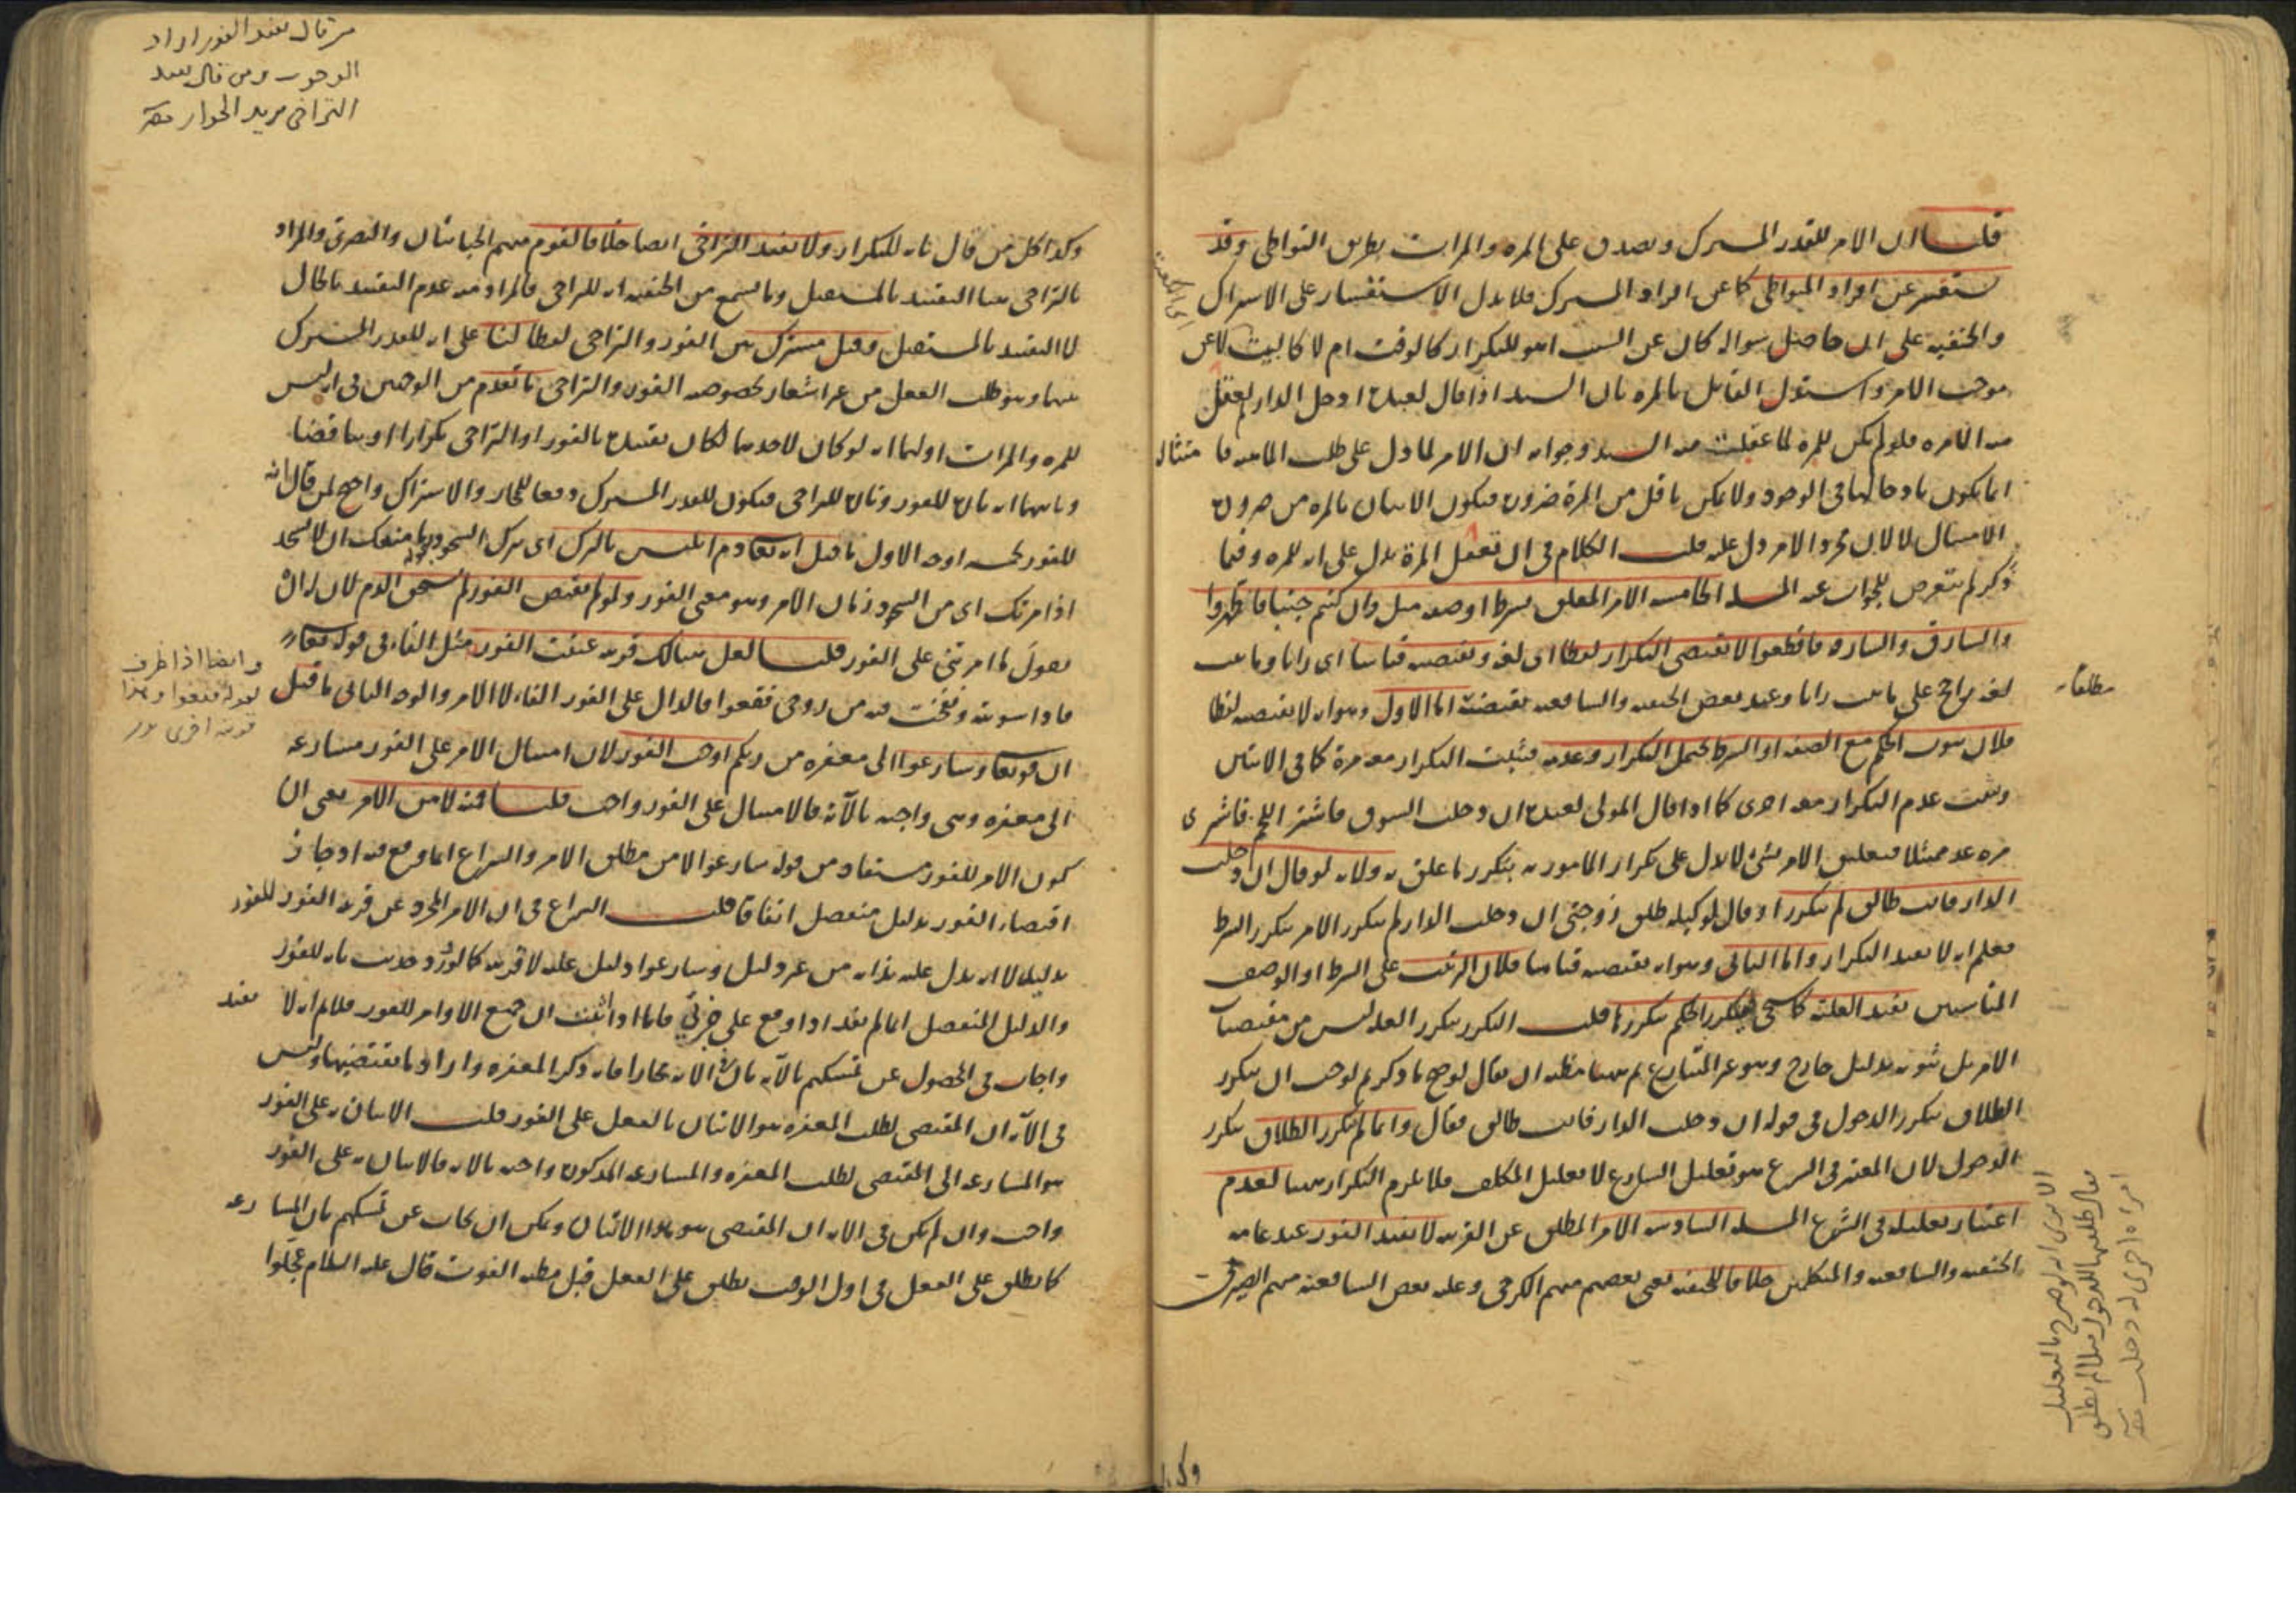 قلنا ان الامر للقدر المشترك ويصدق على المره والمرات بطريق التواطى وقد
يستفسر عن افراد المتواطى كما عن افراد المشترك فلا يدل الاستفسار على الاشتراك
والحنفيه على ان حاصل سواله كان عن السبب اهو للتكرار كالوقت ام لا كالبيت لا عن
موجب الامر واستدل القايل بالمره بان السيد اذا قال لعبده ادخل الدار لم يعقل
منه الا مره فلو لم يكن للمره لما عقلت من السيد وجوابه ان الامر لما دل على طلب الماهيه فامتثالها
انما يكون بادخالها فى الوجود ولا يمكن باقل من المرة ضرورة فيكون الاتيان بالمره من ضرورة
الامتثال لا لان مجرد الامر دل عليه قلت الكلام فى ان تعقل المرة يدل على انه للمره وفيما
ذكر لم يتعرض للجواب عنه المسئلة الخامسه الامر المعلق بشرط او صفه مثل وان كنتم جنبا فاطهروا
والسارق والسارقه فاقطعوا لا يقتضى التكرار لفظا اى لغة ويقتضيه قياسا اى رايا وما ثبت
لغة راجح على ما ثبت رايا وعند بعض الحنفيه والشافعيه يقتضيه اما الاول وهو انه لا يقتضيه لفظا
فلان ثبوت الحكم مع الصفه او الشرط يحتمل التكرار وعدمه فيثبت التكرار معه مرة كما فى الايتين
ويثبت عدم التكرار معه اخرى كما اذا قال المولى لعبده ان دخلت السوق فاشتر اللحم فاشترى
مره عد ممتثلا فتعليق الامر بشئ لا يدل على تكرار المامور به بتكرر ما علق به ولانه لو قال ان دخلت
الدار فانت طالق لم يتكرر او قال لوكيله طلق زوجتى ان دخلت الدار لم يتكرر الامر بتكرر الشرط
فعلم انه لا يفيد التكرار واما الثانى وهو انه يقتضيه قياسا فلان الترتب على الشرط او الوصف
المناسبين يفيد العليه كما سيجى فيتكرر الحكم بتكررها قلت التكرر بتكرر العله ليس من مقتضيات
الامر بل ثبوته بدليل خارج وهو غير المتنازع ثم ههنا مظنه ان يقال لو صح ما ذكرتم لوجب ان يتكرر
الطلاق بتكرر الدخول فى قوله ان دخلت الدار فانت طالق فقال وانما لم يتكرر الطلاق بتكرر
الدخول لان المعتبر فى الشرع هو تعليل الشارع لا تعليل المكلف فلا يلزم التكرار ههنا لعدم
اعتبار تعليله فى الشرع المسئله السادسه الامر المطلق عن القرينه لا يفيد الفور عند عامه
الحنفيه والشافعيه والمتكلمين خلافا للحنفيه يعنى بعضهم منهم الكرخى وعليه بعض الشافعيه منهم الصيرفى
مطلقا
الا يرى انه لو صرح بالتعليل
فقال طلقتها للدخول مثلا لم تطلق
امراة اخرى له دخلت
وكذا
من قال يفيد الفور اراد
الوجوب ومن قال يفيد
التراخى يريد الجواز
وكذا كل من قال بانه للتكرار ولا يفيد التراخى ايضا خلافا لقوم منهم الجبائيان والبصرى والمراد
بالتراخى هنا التقييد بالمستقبل وما يسمع من الحنفيه انه للتراخى فالمراد منه عدم التقييد بالحال
لا التقييد بالمستقبل وقيل مشترك بين الفور والتراخى لفظا لنا على انه للقدر المشترك
بينهما وهو طلب الفعل من غير اشعار بخصوصه الفور والتراخى ما تقدم من الوجهين فى انه ليس
للمره والمرات اولهما انه لو كان لاحدهما لكان تقييده بالفور او التراخى تكرارا او تناقضا
وثانيهما انه تارة للفور وتارة للتراخى فيكون للقدر المشترك دفعا للمجاز والاشتراك واحتج لمن قال انه
للفور بخمسه اوجه الاول ما قيل انه تعالى ذم ابليس بالترك اى بترك السجود بقوله ما منعك ان لا تسجد
اذ امرتك اى من السجود زمان الامر وهو معنى الفور ولو لم يقتض الفور لم يستحق الذم لان له ان
يقول لما امرتنى على الفور قلنا لعل هنالك قرينه عينت الفور مثل الفاء فى قوله تعالى
فاذا سويته ونفخت فيه من روحى فقعوا فالدال على الفور الفاء لا الامر والوجه الثانى ما قيل
ان قوله تعالى وسارعوا الى مغفره من ربكم اوجب الفور لان امتثال الامر على الفور مسارعه
الى مغفره وهى واجبه بالآيه فالامتثال على الفور واجب قلنا فمنه لا من الامر يعنى ان
كون الامر للفور مستفاد من قوله سارعوا لا من مطلق الامر والنزاع انما وقع فيه اذ جاز
اقتضاء الفور بدليل منفصل اتفاقا قلت النزاع فى ان الامر المجرد عن قرينه الفور للفور
بدليله لا انه يدل عليه بذاته من غير دليل وسارعوا دليل عليه لا قرينه كالورود وحديث بانه للفور
والدليل المنفصل انما لم يفد اذا وقع على جزئى فاما اذا اثبت ان جميع الاوامر للفور فلا نسلم انه لا يفيد
واجاب فى المحصول عن تمسكهم بالآيه بان فى الايه مجازا فانه ذكر المغفره واراد ما يقتضيها وليس
فى الآيه ان المقتضى لطلب المغفره هو الاتيان بالفعل على الفور قلت الاتيان به على الفور
هو المسارعه الى المقتضى لطلب المغفره والمسارعه المذكوره واجبه بالايه فالاتيان به على الفور
واجب وان لم يكن فى الايه ان المقتضى هو هذا الاتيان ويمكن ان يجاب عن تمسكهم بان المسارعه
كما يطلق على الفعل فى اول الوقت يطلق على الفعل قبل مظنه الفوت قال عليه السلام عجلوا
وايضا اذا ظرف
لقوله فقعوا وهذا
قرينه اخرى